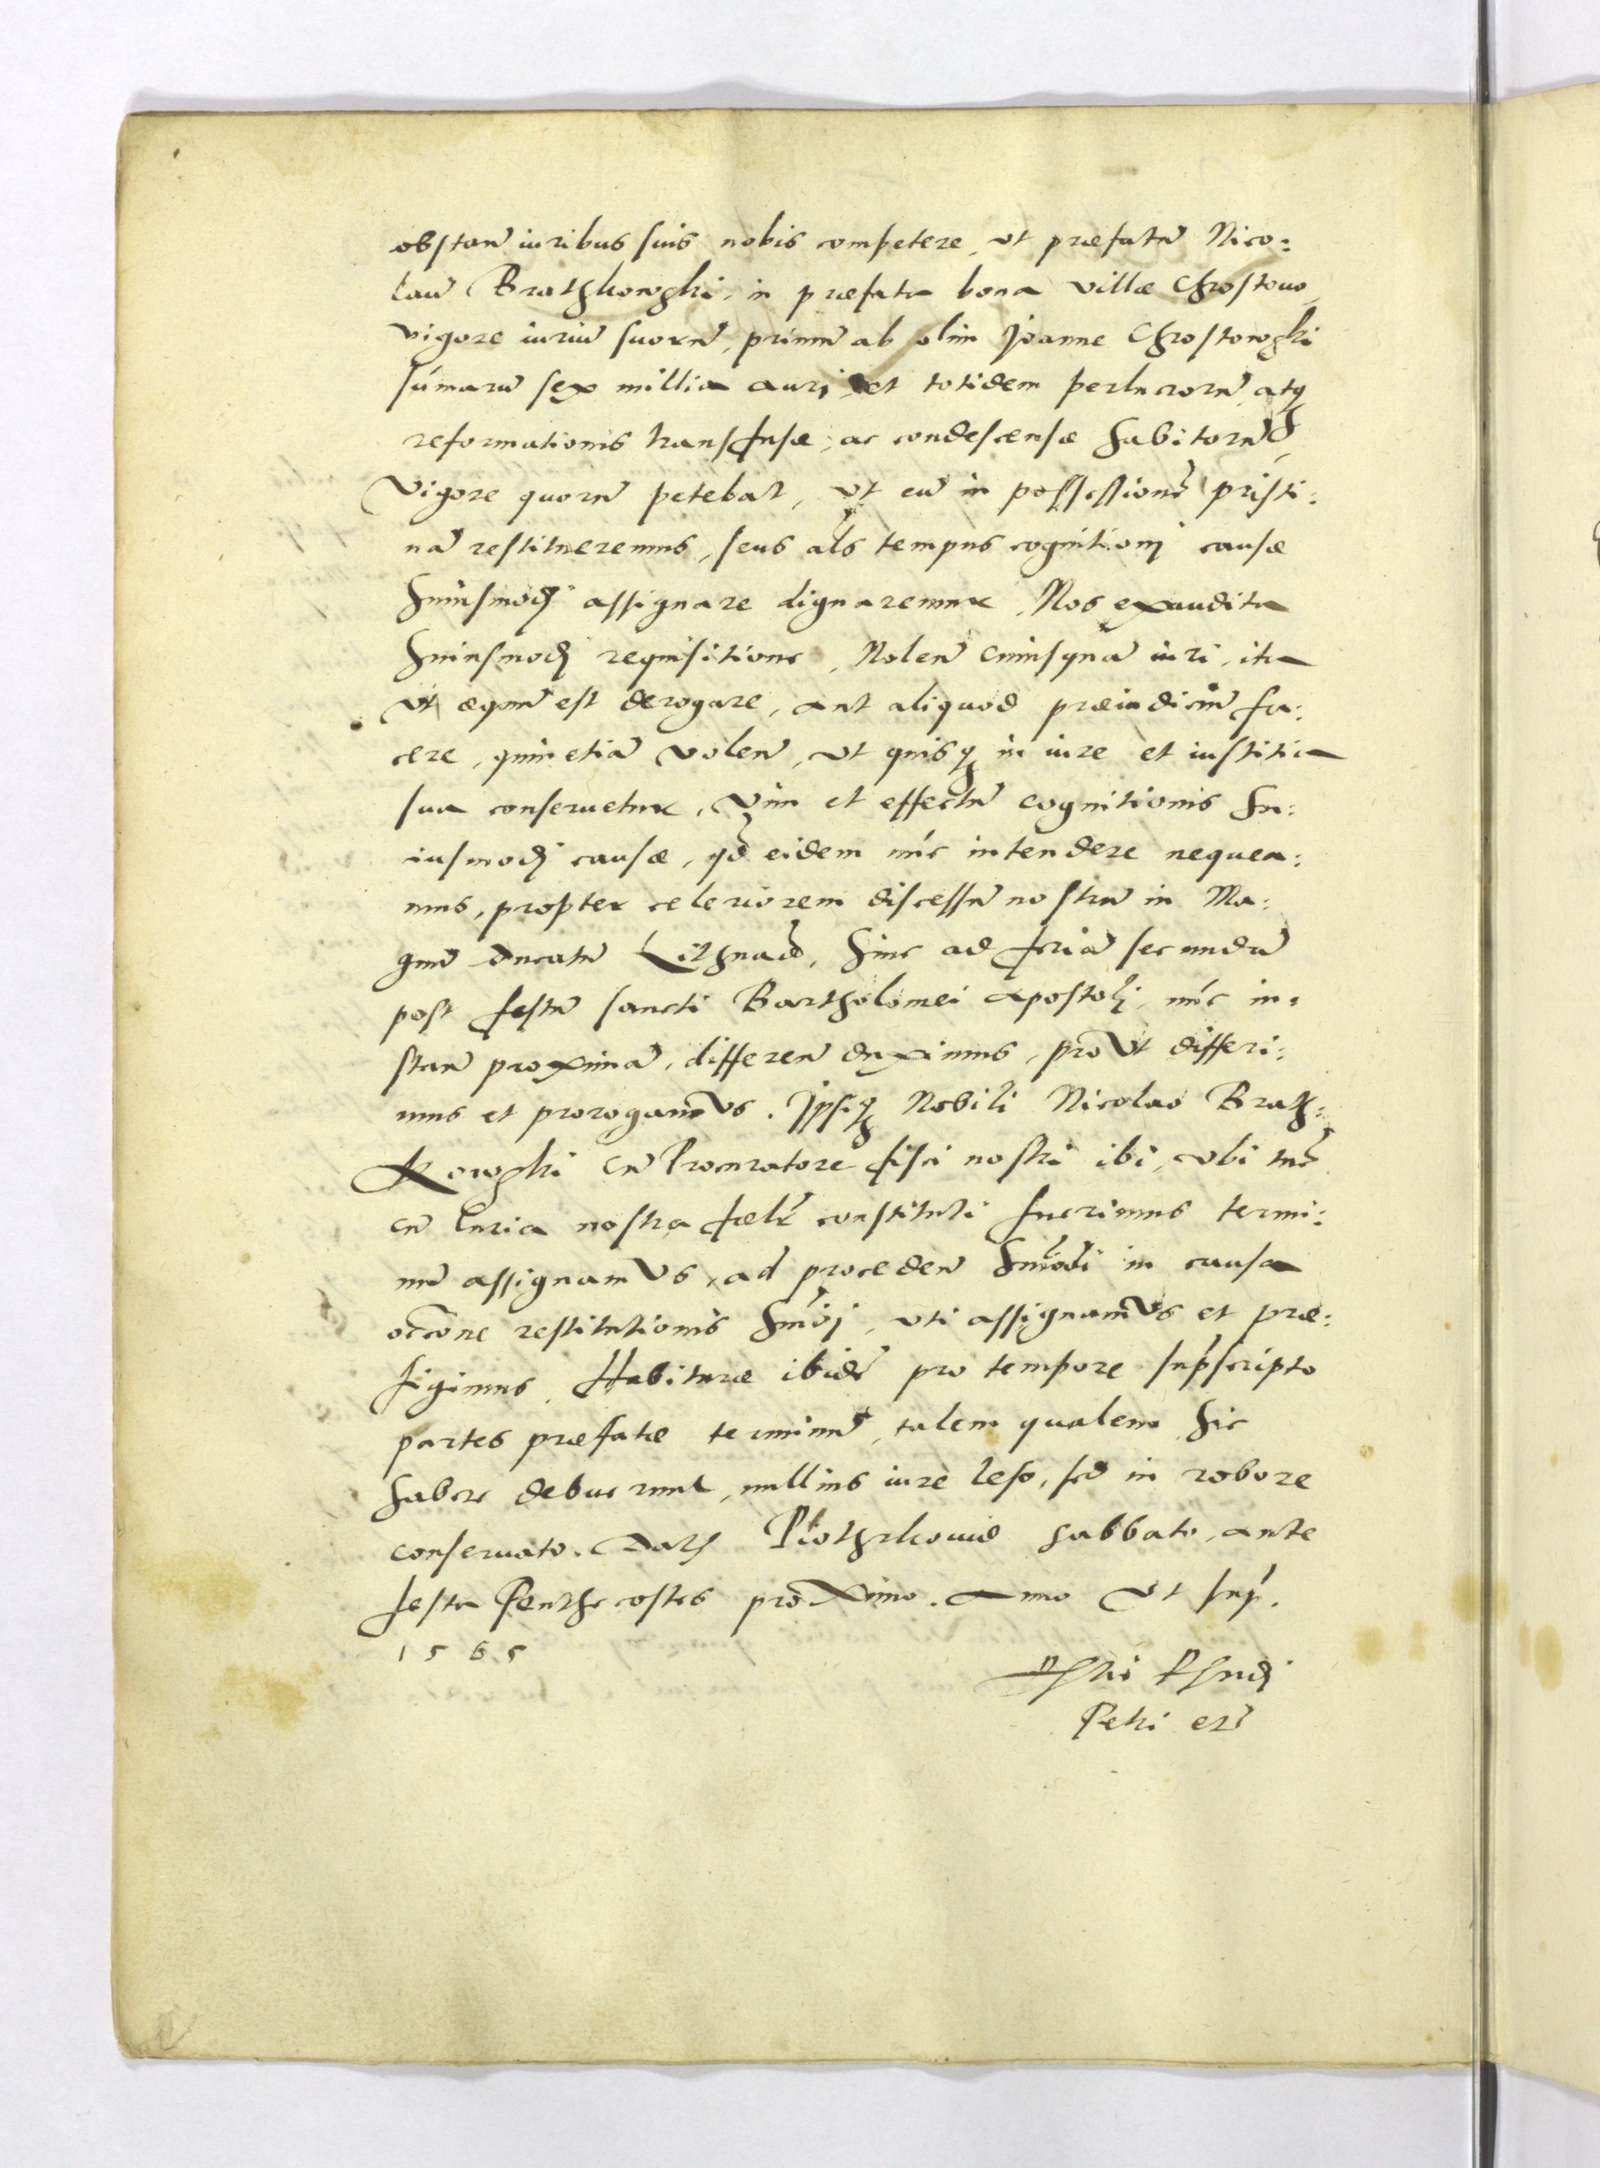 obstan̄ iuribus suis nobis competere, vt præfatū Nico:
laū Brathkowski, in præfata bona villæ Chrostowo,
vigore iuriū suorū, primū ab olim Joanne Chrostowski
sūmarū sex millia auri et totidem perlucrorū, atq
reformationis transfusæ, ac condescensæ habitorū,
Vigore quorū petebat, vt eū in possessionē pristi:
nā restitueremus, seus als tempus cognitionj causæ
huiusmodj assignare dignaremur, Nos exaudita
huiusmodj requisitione, Nolen̄ cuiusquā iuri, ita
vt æquū est derogare, aut aliquod præiudiciū fa:
cere, quin etiā volen̄, vt quisq in iure et iustitia
sua conseruetur, Vim et effectū cognitionis hu:
iusmodj causæ, qd eidem nūc intendere nequea:
mus, propter celeriorem discessū nostrū in Ma:
gnū Ducatū Lithuaō, hinc ad feriā secundā
post festū sancti Bartholomei apostolj, nūc in:
stan̄ proximā, differen̄ duximus, prout differi:
mus et prorogamus. Jpsiq Nobili Nicolao Brath:
Kowski cū Procuratore fisci nostri ibi, vbi tūc
cū Curia nostra fælr constituti fuerimus termi:
nū assignamus, ad proceden̄ hmōi in causa
occōne restitutionis hmōj, vti assignamus et præ:
figimus, Habituræ ibidē pro tempore supscripto
partes præfatæ terminū, talem qualem hic
habere debuerunt, nullius iure leso, sed in robore
conseruato. Dath Piothrkouiæ sabbato, ante
festa Penthecostes proximo. Anno Vt sup.
1565
Petri